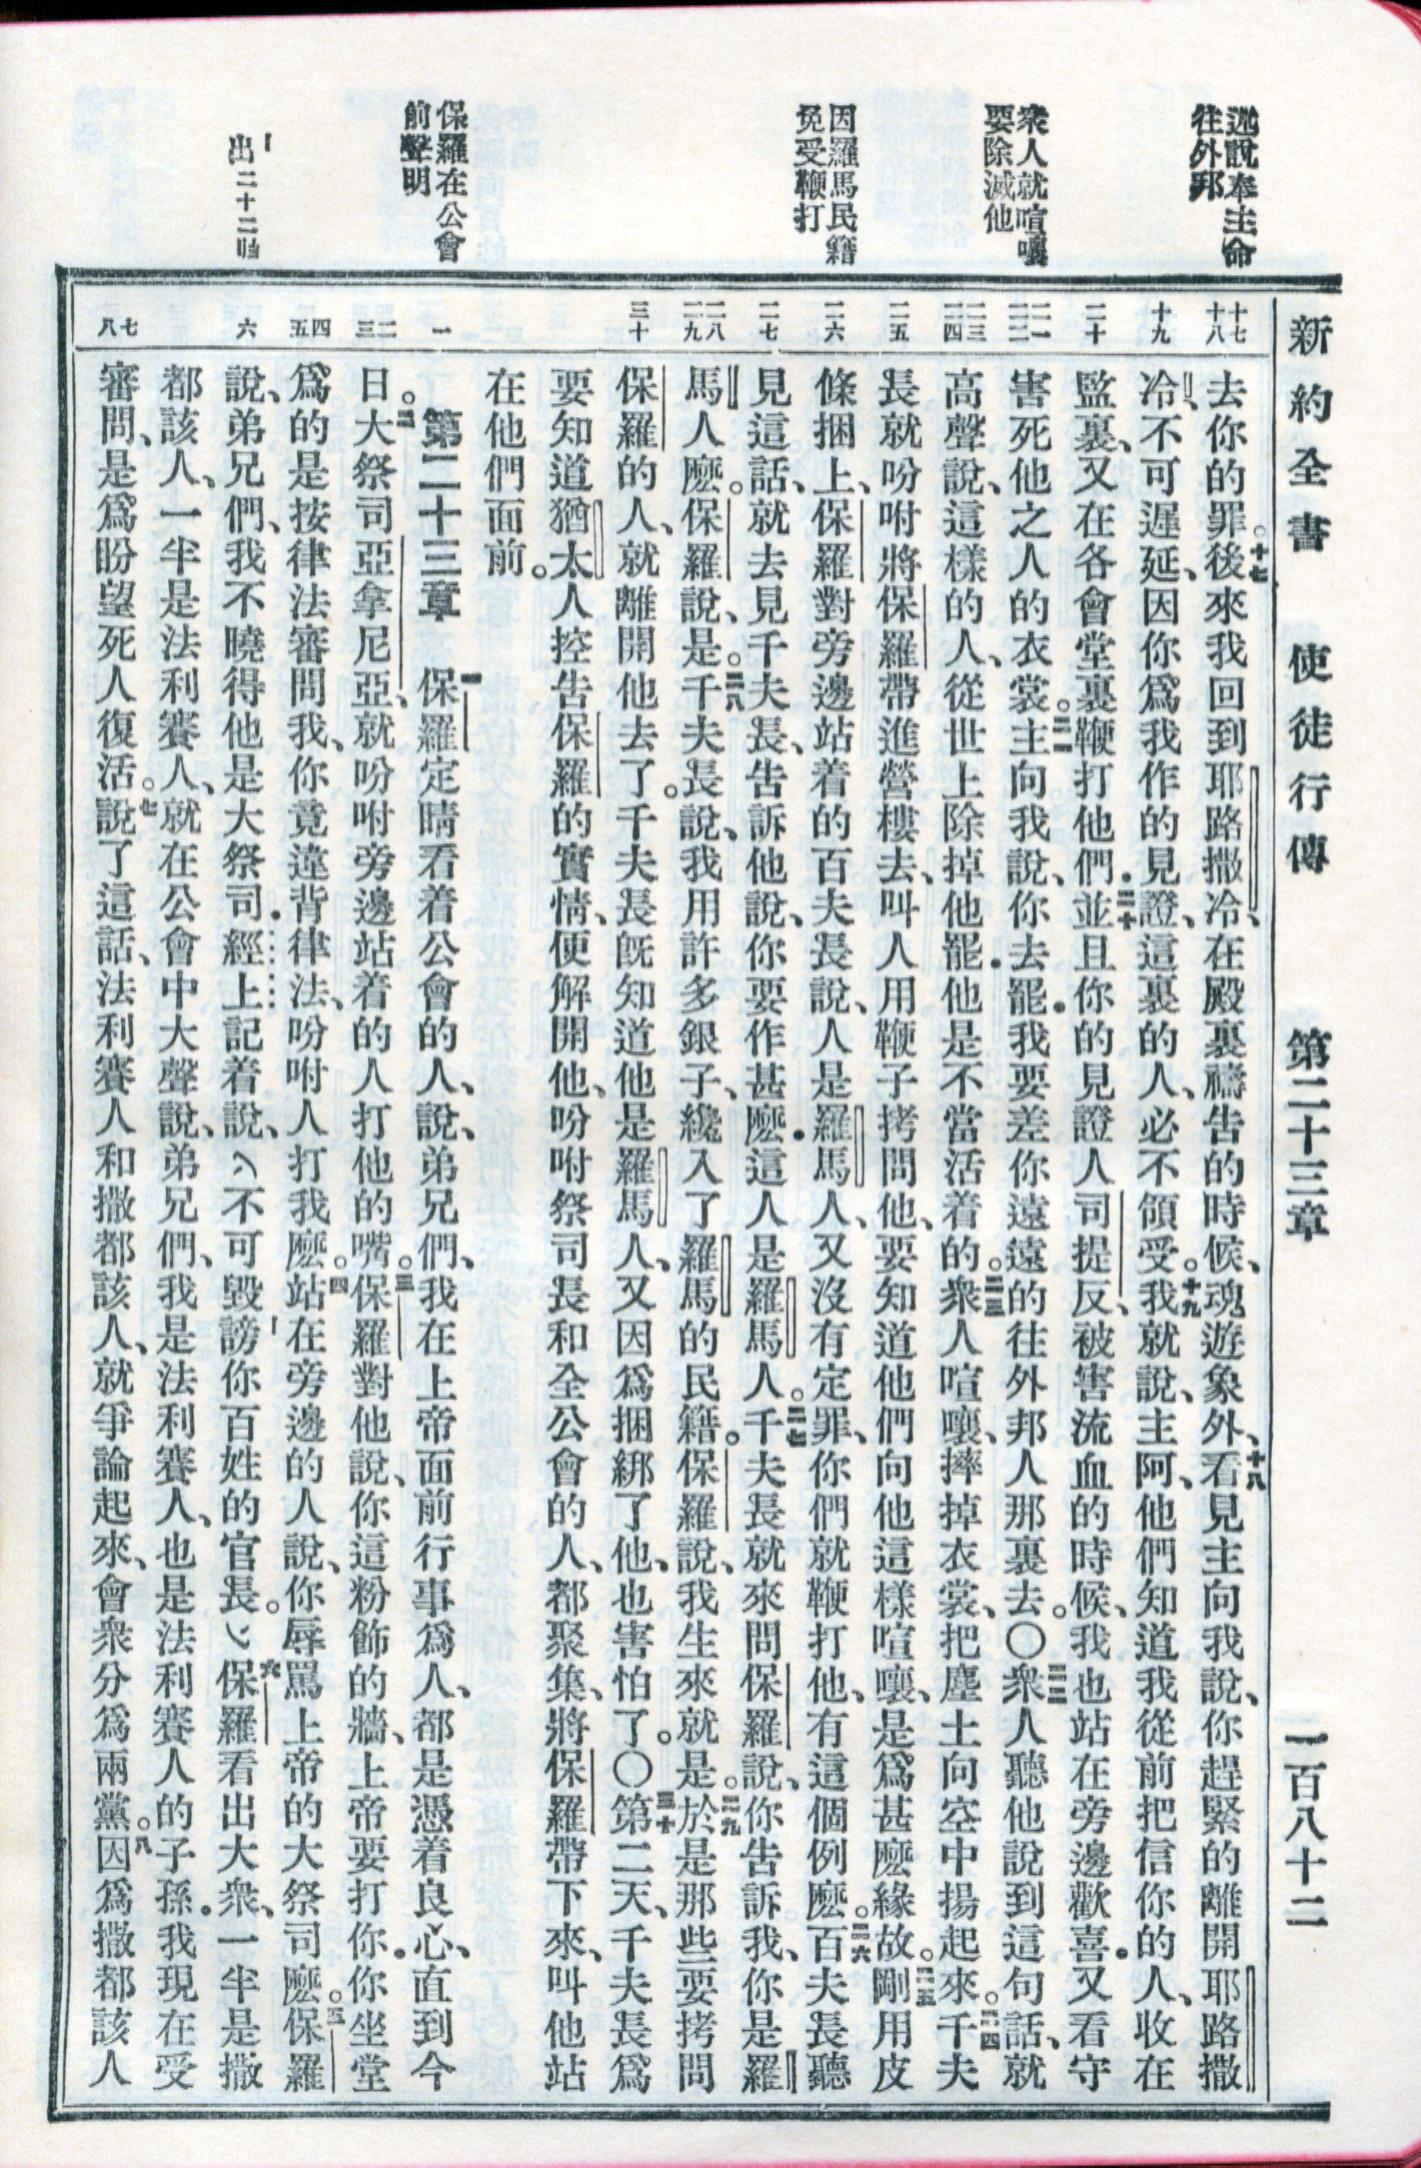 新約全書　使徒行傳　第二十三章　一百八十二
述說奉主命
往外邦
衆人就喧嚷
要除滅他
因羅馬民籍
免受鞭打
保羅在公會
前聲明
出二十二 
十七
十八
十九
二十
二一
二二
二三
二四
二五
二六
二七
二八
二九
三十
一
二
三
四
五
六
七
八
去你的罪。十七後來我回到耶路撒冷、在殿裏禱告的時候、魂遊象外、十八看見主向我說、你趕緊的離開耶路撒
冷、不可遲延、因你爲我作的見證、這裏的人、必不領受。十九我就說、主阿、他們知道我從前把信你的人、收在
監裏、又在各會堂裏鞭打他們．二十並且你的見證人司提反、被害流血的時候、我也站在旁邊歡喜．又看守
害死他之人的衣裳。二一主向我說、你去罷．我要差你遠遠的往外邦人那裏去。〇二二衆人聽他說到這句話、就
高聲說、這樣的人、從世上除掉他罷．他是不當活着的。二三衆人喧嚷、摔掉衣裳、把塵土向空中揚起來。二四千夫
長就吩咐將保羅帶進營樓去、叫人用鞭子拷問他、要知道他們向他這樣喧嚷、是爲甚麽緣故。二五剛用皮
條捆上、保羅對旁邊站着的百夫長說、人是羅馬人、又沒有定罪、你們就鞭打他、有這個例麽。二六百夫長聽
見這話、就去見千夫長、告訴他說、你要作甚麽．這人是羅馬人。二七千夫長就來問保羅說、你告訴我、你是羅
馬人麽。保羅說、是。二八千夫長說、我用許多銀子、纔入了羅馬的民籍。保羅說、我生來就是。二九於是那些要拷問
保羅的人、就離開他去了。千夫長旣知道他是羅馬人、又因爲捆綁了他、也害怕了。〇三十第二天、千夫長爲
要知道猶太人控告保羅的實情、便解開他、吩咐祭司長和全公會的人、都聚集、將保羅帶下來、叫他站
在他們面前。
第二十三章　一保羅定睛看着公會的人、說、弟兄們、我在上帝面前行事爲人、都是憑着良心、直到今
日。二大祭司亞拿尼亞、就吩咐旁邊站着的人打他的嘴。三保羅對他說、你這粉飾的牆、上帝要打你．你坐堂
爲的是按律法審問我、你竟違背律法、吩咐人打我麽。四站在旁邊的人說、你辱罵上帝的大祭司麽。五保羅
說、弟兄們、我不曉得他是大祭司．經上記着說、〈不可毀謗你百姓的官長。〉六保羅看出大衆、一半是撒
都該人、一半是法利賽人、就在公會中大聲說、弟兄們、我是法利賽人、也是法利賽人的子孫．我現在受
審問、是爲盼望死人復活。七說了這話、法利賽人和撒都該人、就爭論起來、會衆分爲兩黨。八因爲撒都該人